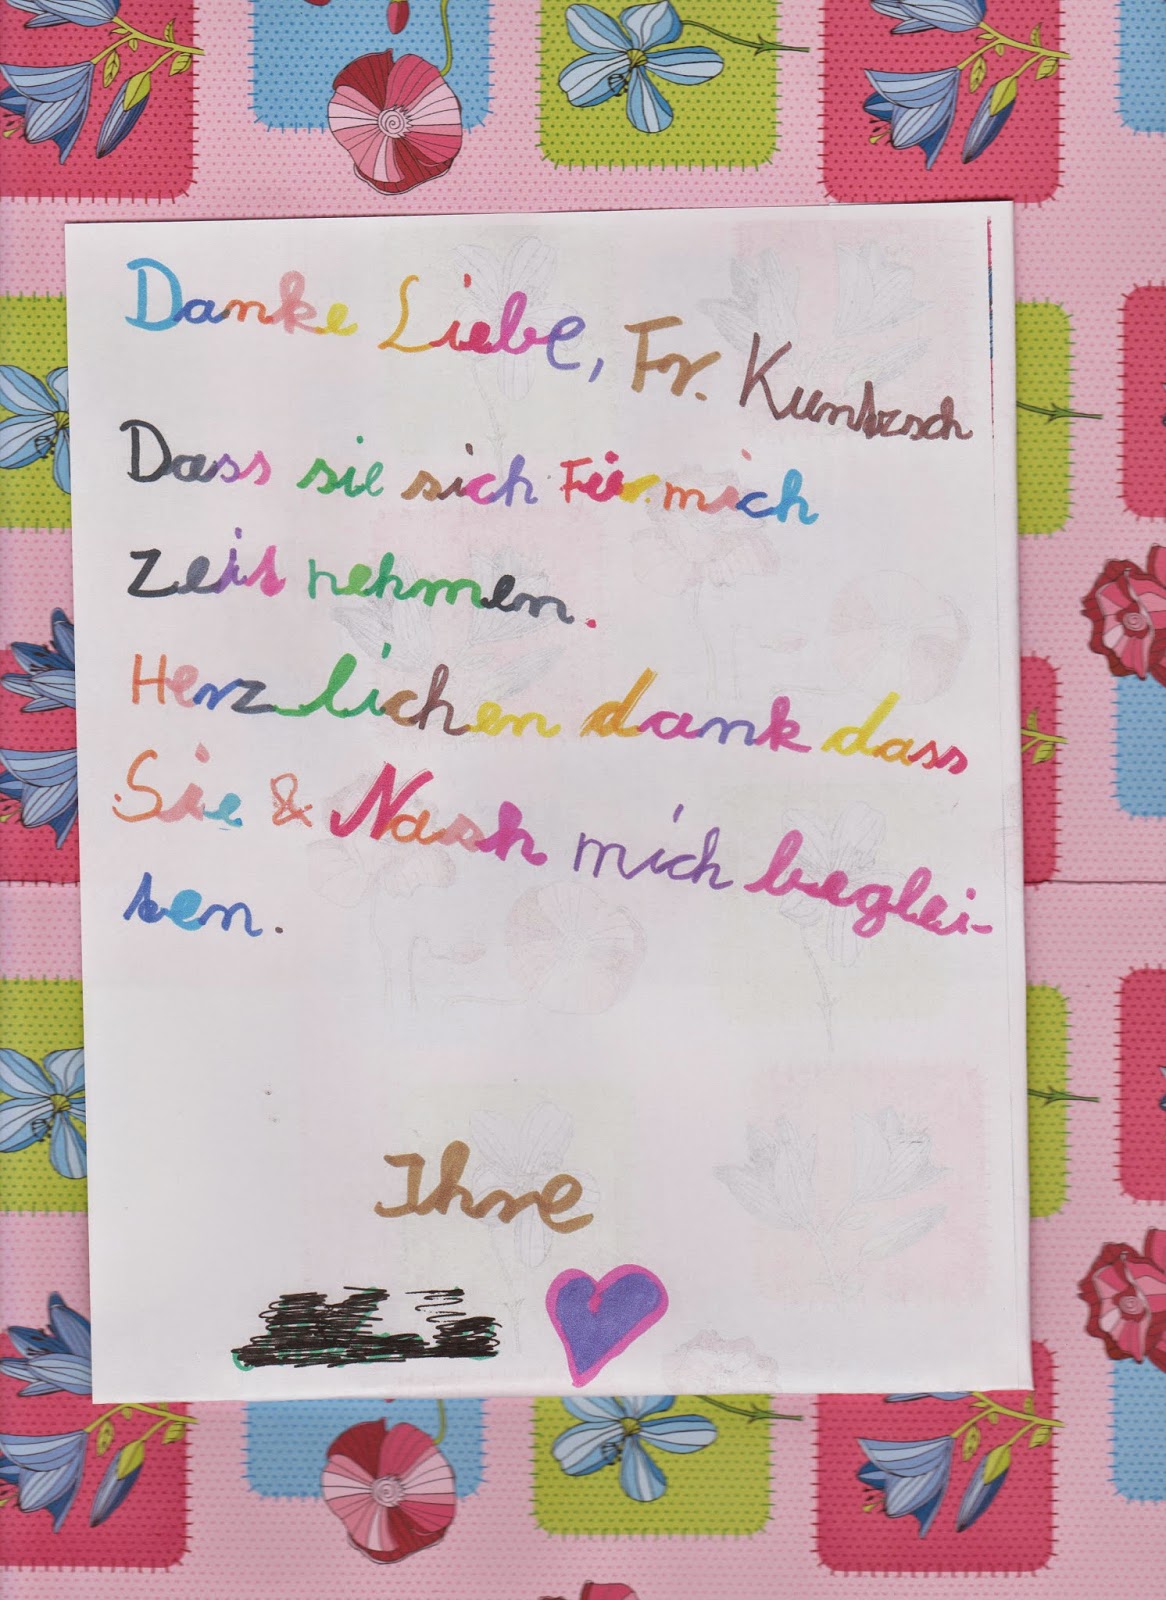 Danke Liebe, Fr. Kuntzsch
Dass sie sich Für mich
Zeit nehmen.
Herzlichen dank dass
Sie & Nash mich beglei-
ten.
Ihre